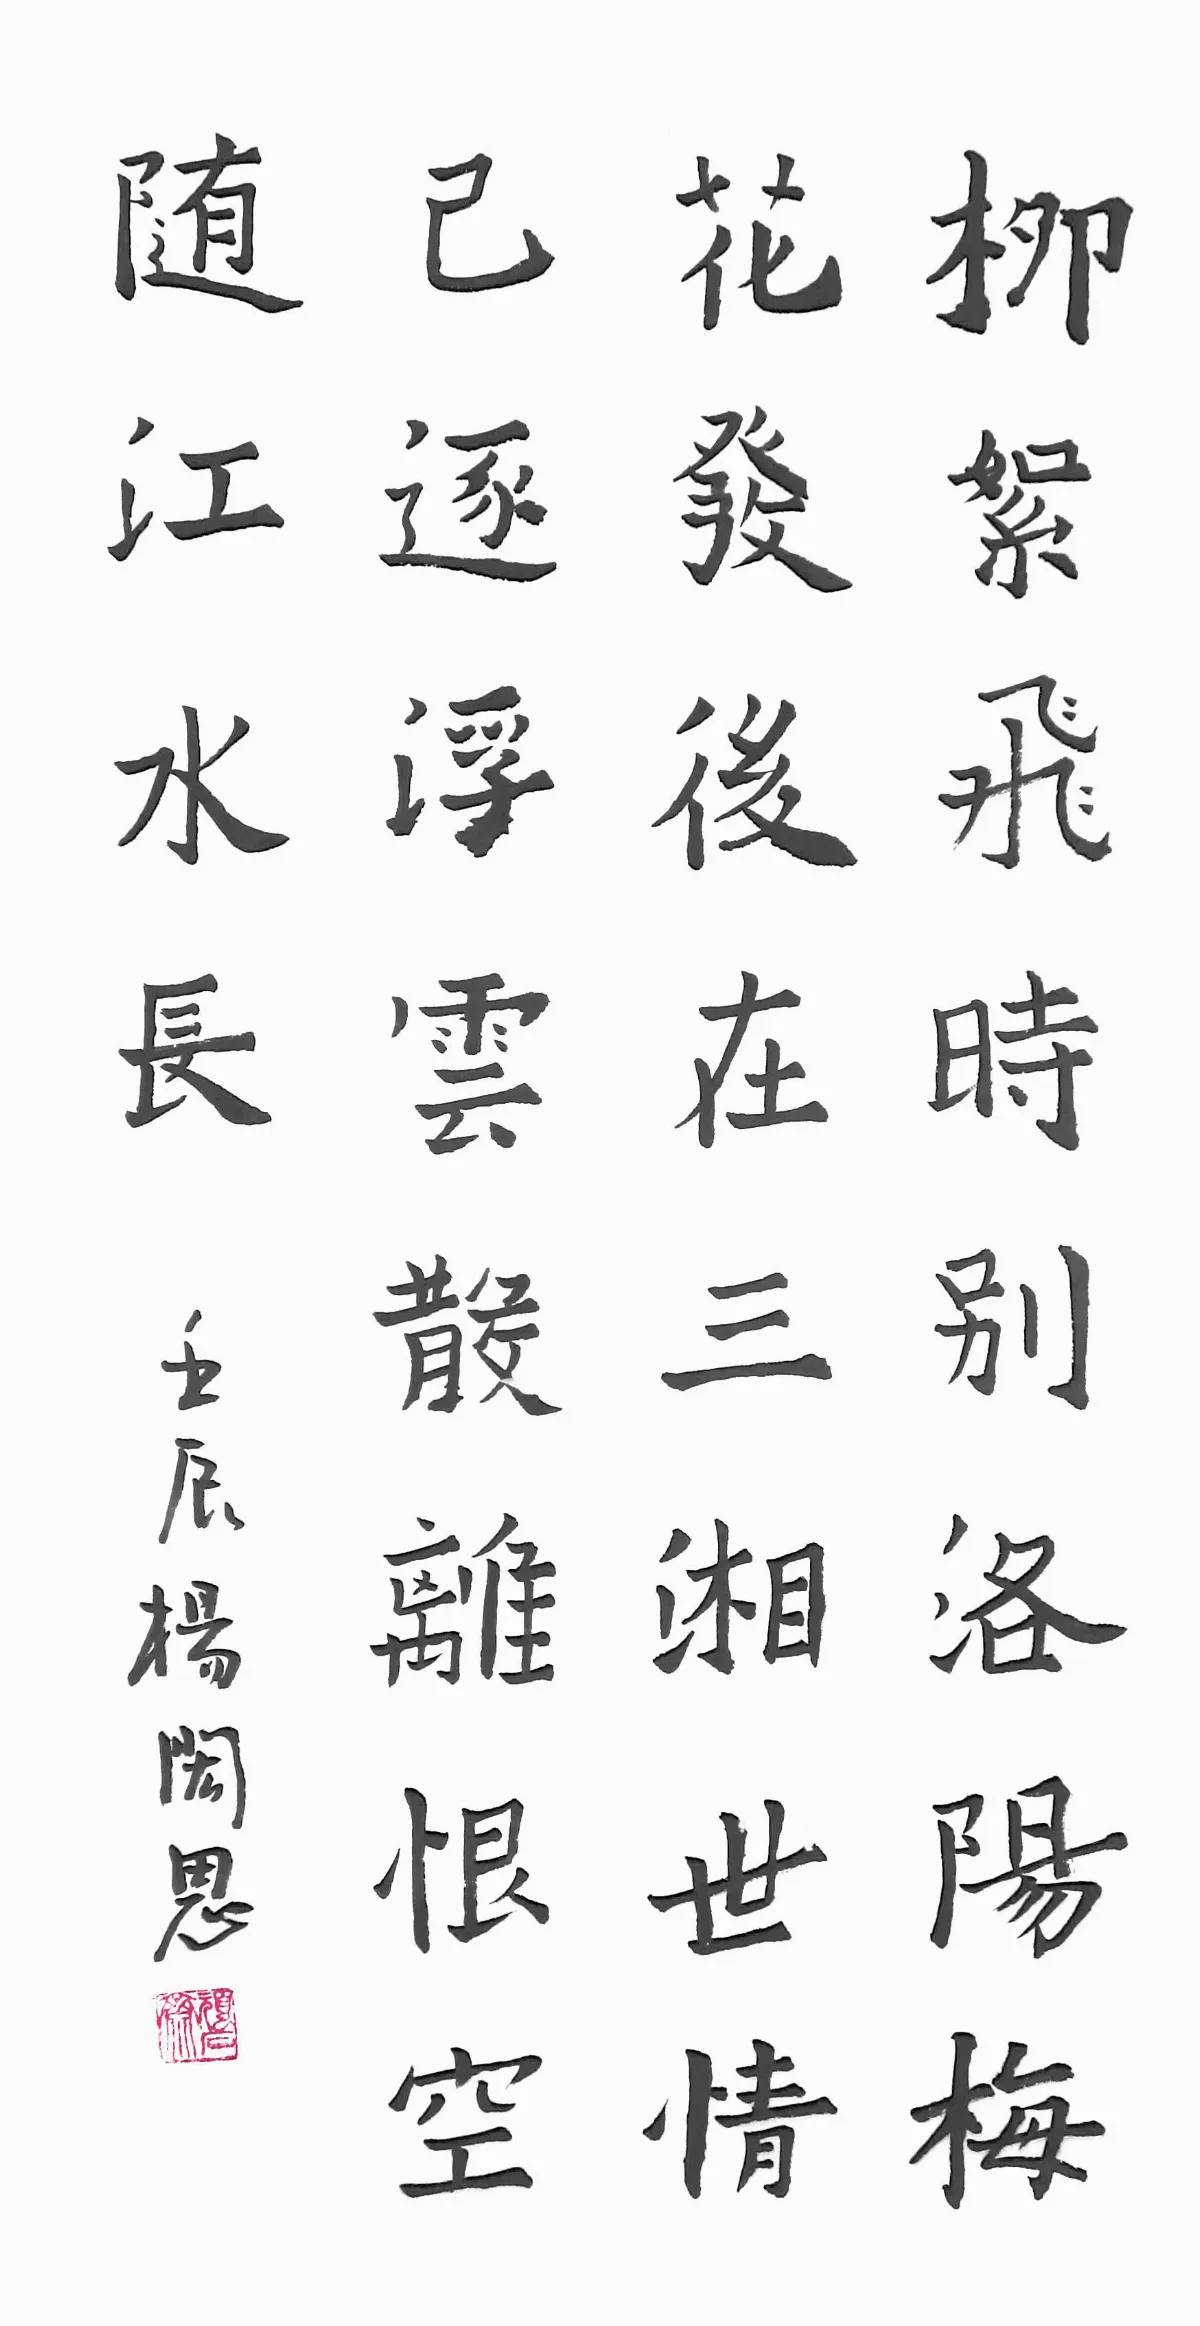 柳絮飛時别洛陽梅
花發後在三湘世情
已逐浮雲散離恨空
随江水長
壬辰楊閎思